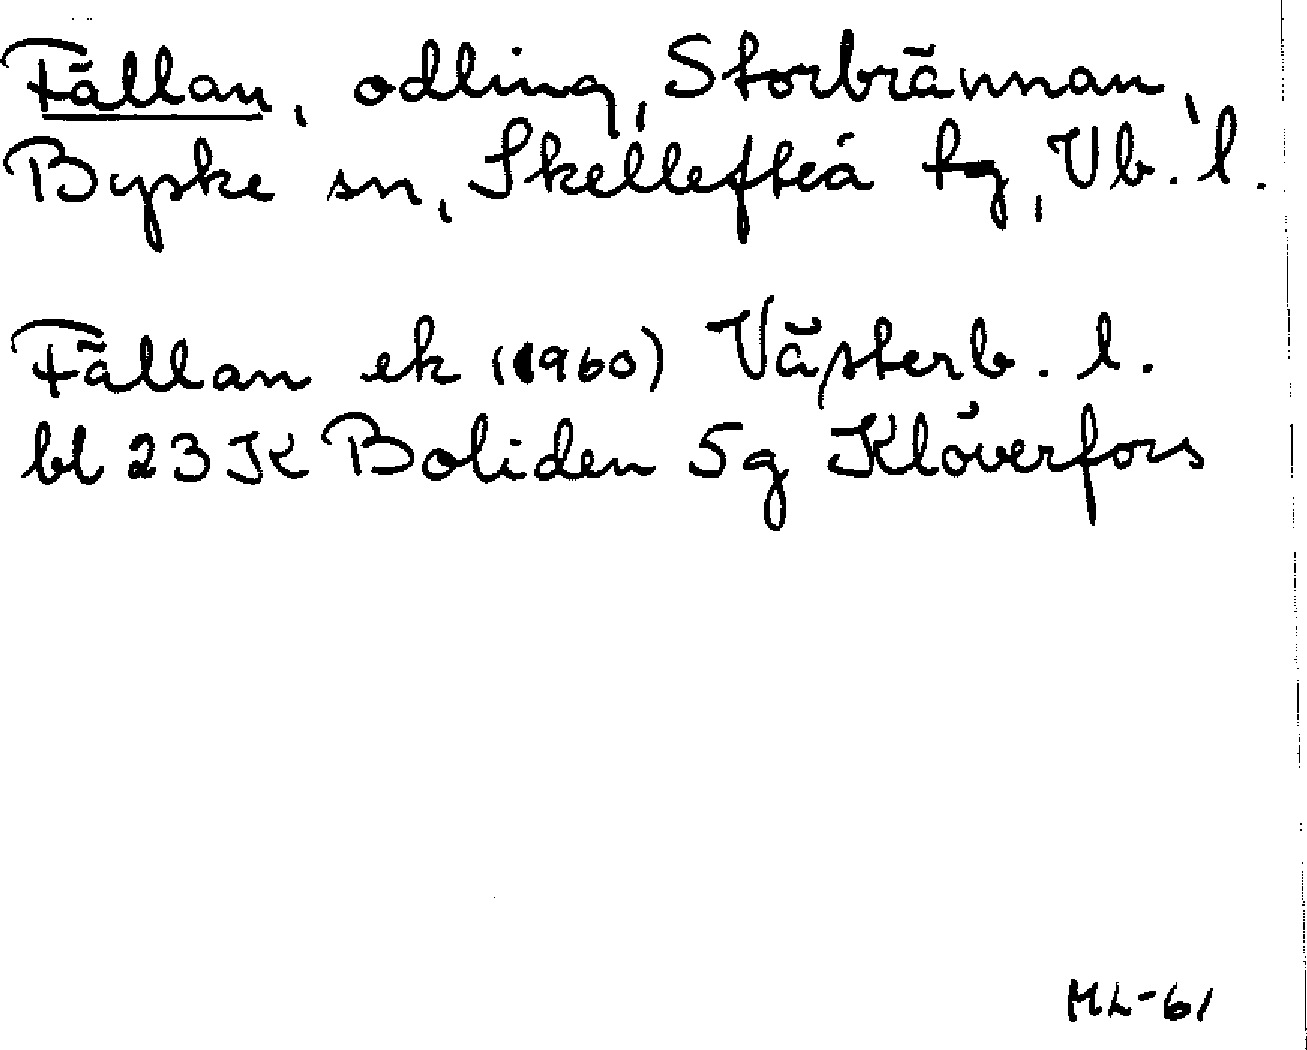 Fällan, odling, Storbrännan,
Byske sn, Skellefteå tg, Vb. l.
Fällan ek (1960) Västerb. l.
bl 23 K Boliden 5g Klöverfors
ML-61